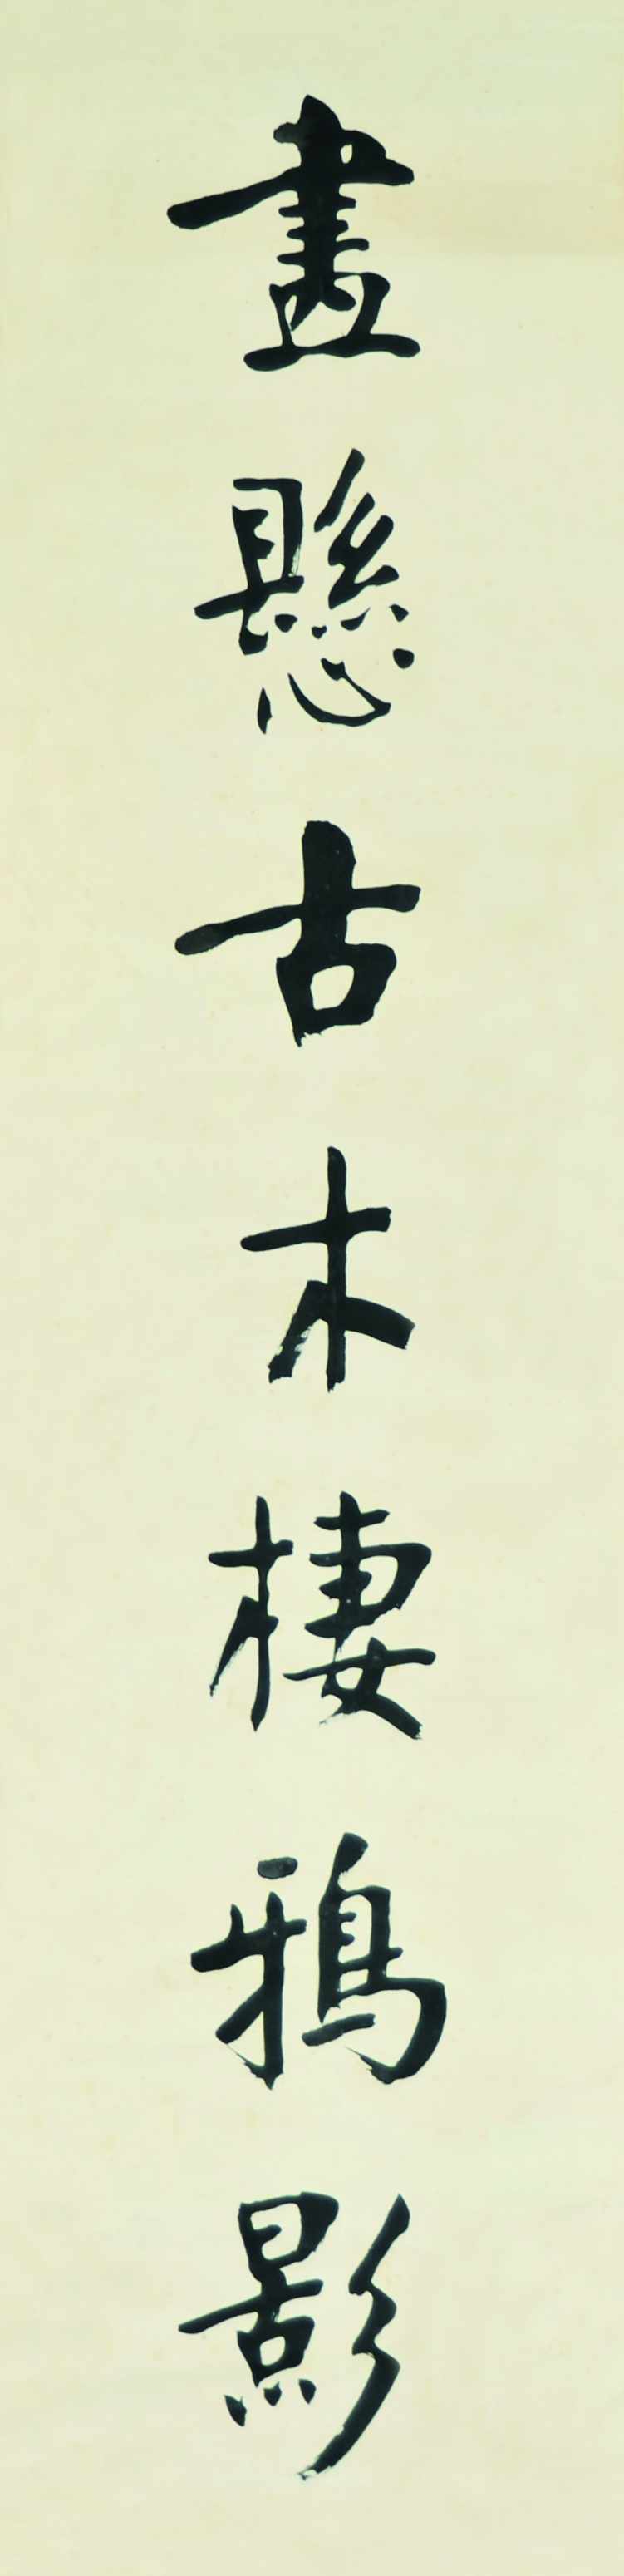 畫懸古木棲鴉影